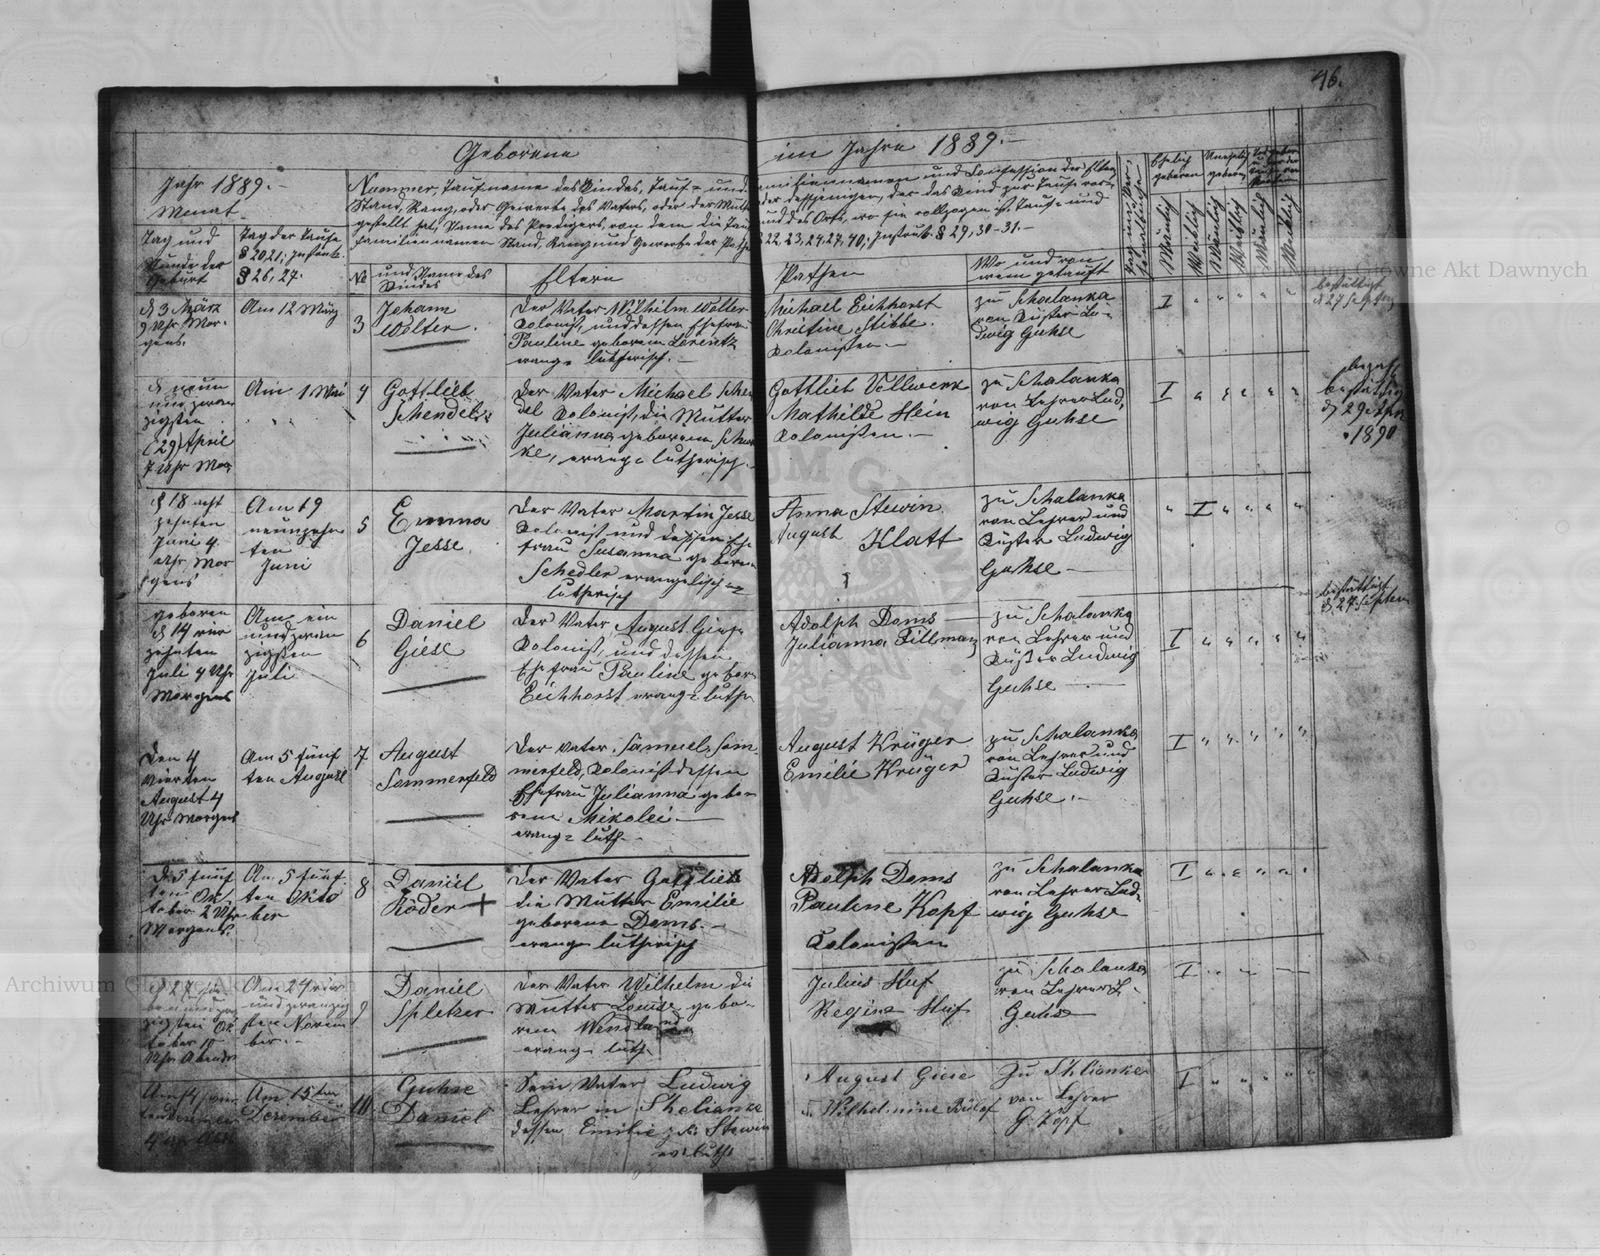 46.
Geborene im Jahre 1889.
Jahr 1889.
Monat
Nummer, Taufname des Kindes, Tauf- und Familiennamen und Confession der Eltern
Stand, Rang, oder Gewerbe des Vaters, oder der Mutter
gestellt hat, Name des Predigers, von dem die Taufe und des Orts, wo sie vollzogen ist. Taufe und
Familiennamen Stand, Rang und Gewerbe der Pathen
Tag und
Stunde der
Geburt
Tag der Taufe
§ 26, 27.
No
und Name des
Kindes
Eltern
Pathen
Wo und von
wem getauft
Ehelich
geboren
Unehelig
geboren
Mänlich
Weiblich
Mänlich
Weiblich
Mänlich
Weiblich
d 3 März
9 Uhr Mor-
gens.
Am 12 März
3
Johann
Wolter.
Der Vater Wilhelm Wolter
Kolonist, und dessen Ehefrau
Pauline geborene Lorentz
evang= lutherisch.
Michael Eichhorst
Christine Stibbe.
Kolonisten
zu Schalanka
von Küster Lu-
dwig Guhse
I
bestättigt
d 27 Septem
d neun
und zwan
zigsten
(29) April
7 Uhr Mor
Am 1 Mai
4
Gottlieb
Schendel
Der Vater Michael Schen
del Kolonist, die Mutter
Julianna, geborene
ke, evang= lutherisch.
Gottlieb Vollwerk
Mathilde Hein
Kolonisten
zu Schalanka
von Lehrer Lud,
wig Guhse
I
1890
d 18 acht
zehnten
Juni 4
Uhr Mor
gens
Am 19
neunzehn
ten
Juni
5
Emma
Jesse
Der Vater Martin Jesse
Kolonist und dessen Ehe
frau Susanna gebore
Schedler evangelisch=
lutherisch
Anna Stewin
August Klatt
zu Schalanka
von Lehrer und
Küster Ludwig
Guhse
I
geboren
d 14 vier
zehnten
Juli 4 Uhr
Morgens
Am ein
und zwan
zigsten
Juli
6
Daniel
Giese
Der Vater August Giese
Kolonist, und dessen
Ehefrau Pauline gebore
Eichhorst evang= luth
Adolph Dams
Julianna Tillman
zu Schalanka
von Lehrer und
Küster Ludwig
Guhse
I
bestättigt
d, 27. Septem
Den 4
vierten
August 4
Uhr Morgens
Am 5 fünf
ten August
7
August
Sommerfeld
Der Vater Samuel Som
merfeld, Kolonist dessen
Ehefrau Julianna gebo
rene Mikolei
evang= luth.
August Krüger
Emilie Krüger
zu Schalanka
von Lehrer und
Küster Ludwig
Guhse.
I
d 5 fünf
ten Ok,
tober 2 Uhr
Morgens.
Am 5 fünf
ten Okto
ber
8
Daniel
Röder +
Der Vater Gottlieb
die Mutter Emilie
geborene Dams.
evang= lutherisch
Adolph Dams
Pauline Kopf
Kolonisten
zu Schalanka
von Lehrer Lud-
wig Guhse
I
d 27 sie
ben und zwan
zigsten Ok
tober 10
Uhr Abends
Am 24 vier
und zwanzig
sten Novem
ber.
9
Daniel
Spletzer
Der Vater Wilhelm die
Mutter Louise gebo-
rene Wendland
evang= luth.
Julius Huf
Regine Huf
zu Schalanka
von Lehrer L.
Guhse
I
Am 15ten
Dezember
10
Guhse
Daniel
Sein Vater Ludwig
Lehrer in Skalianke
dessen Emilie geb. Stewin
ev. luth.
August Giese
Wilhelmine Bülof
Zu Sklianke
von Lehrer
G. Kopf
I
Archiwum Główne Akt Dawnych
Archiwum Główne Akt Dawnych